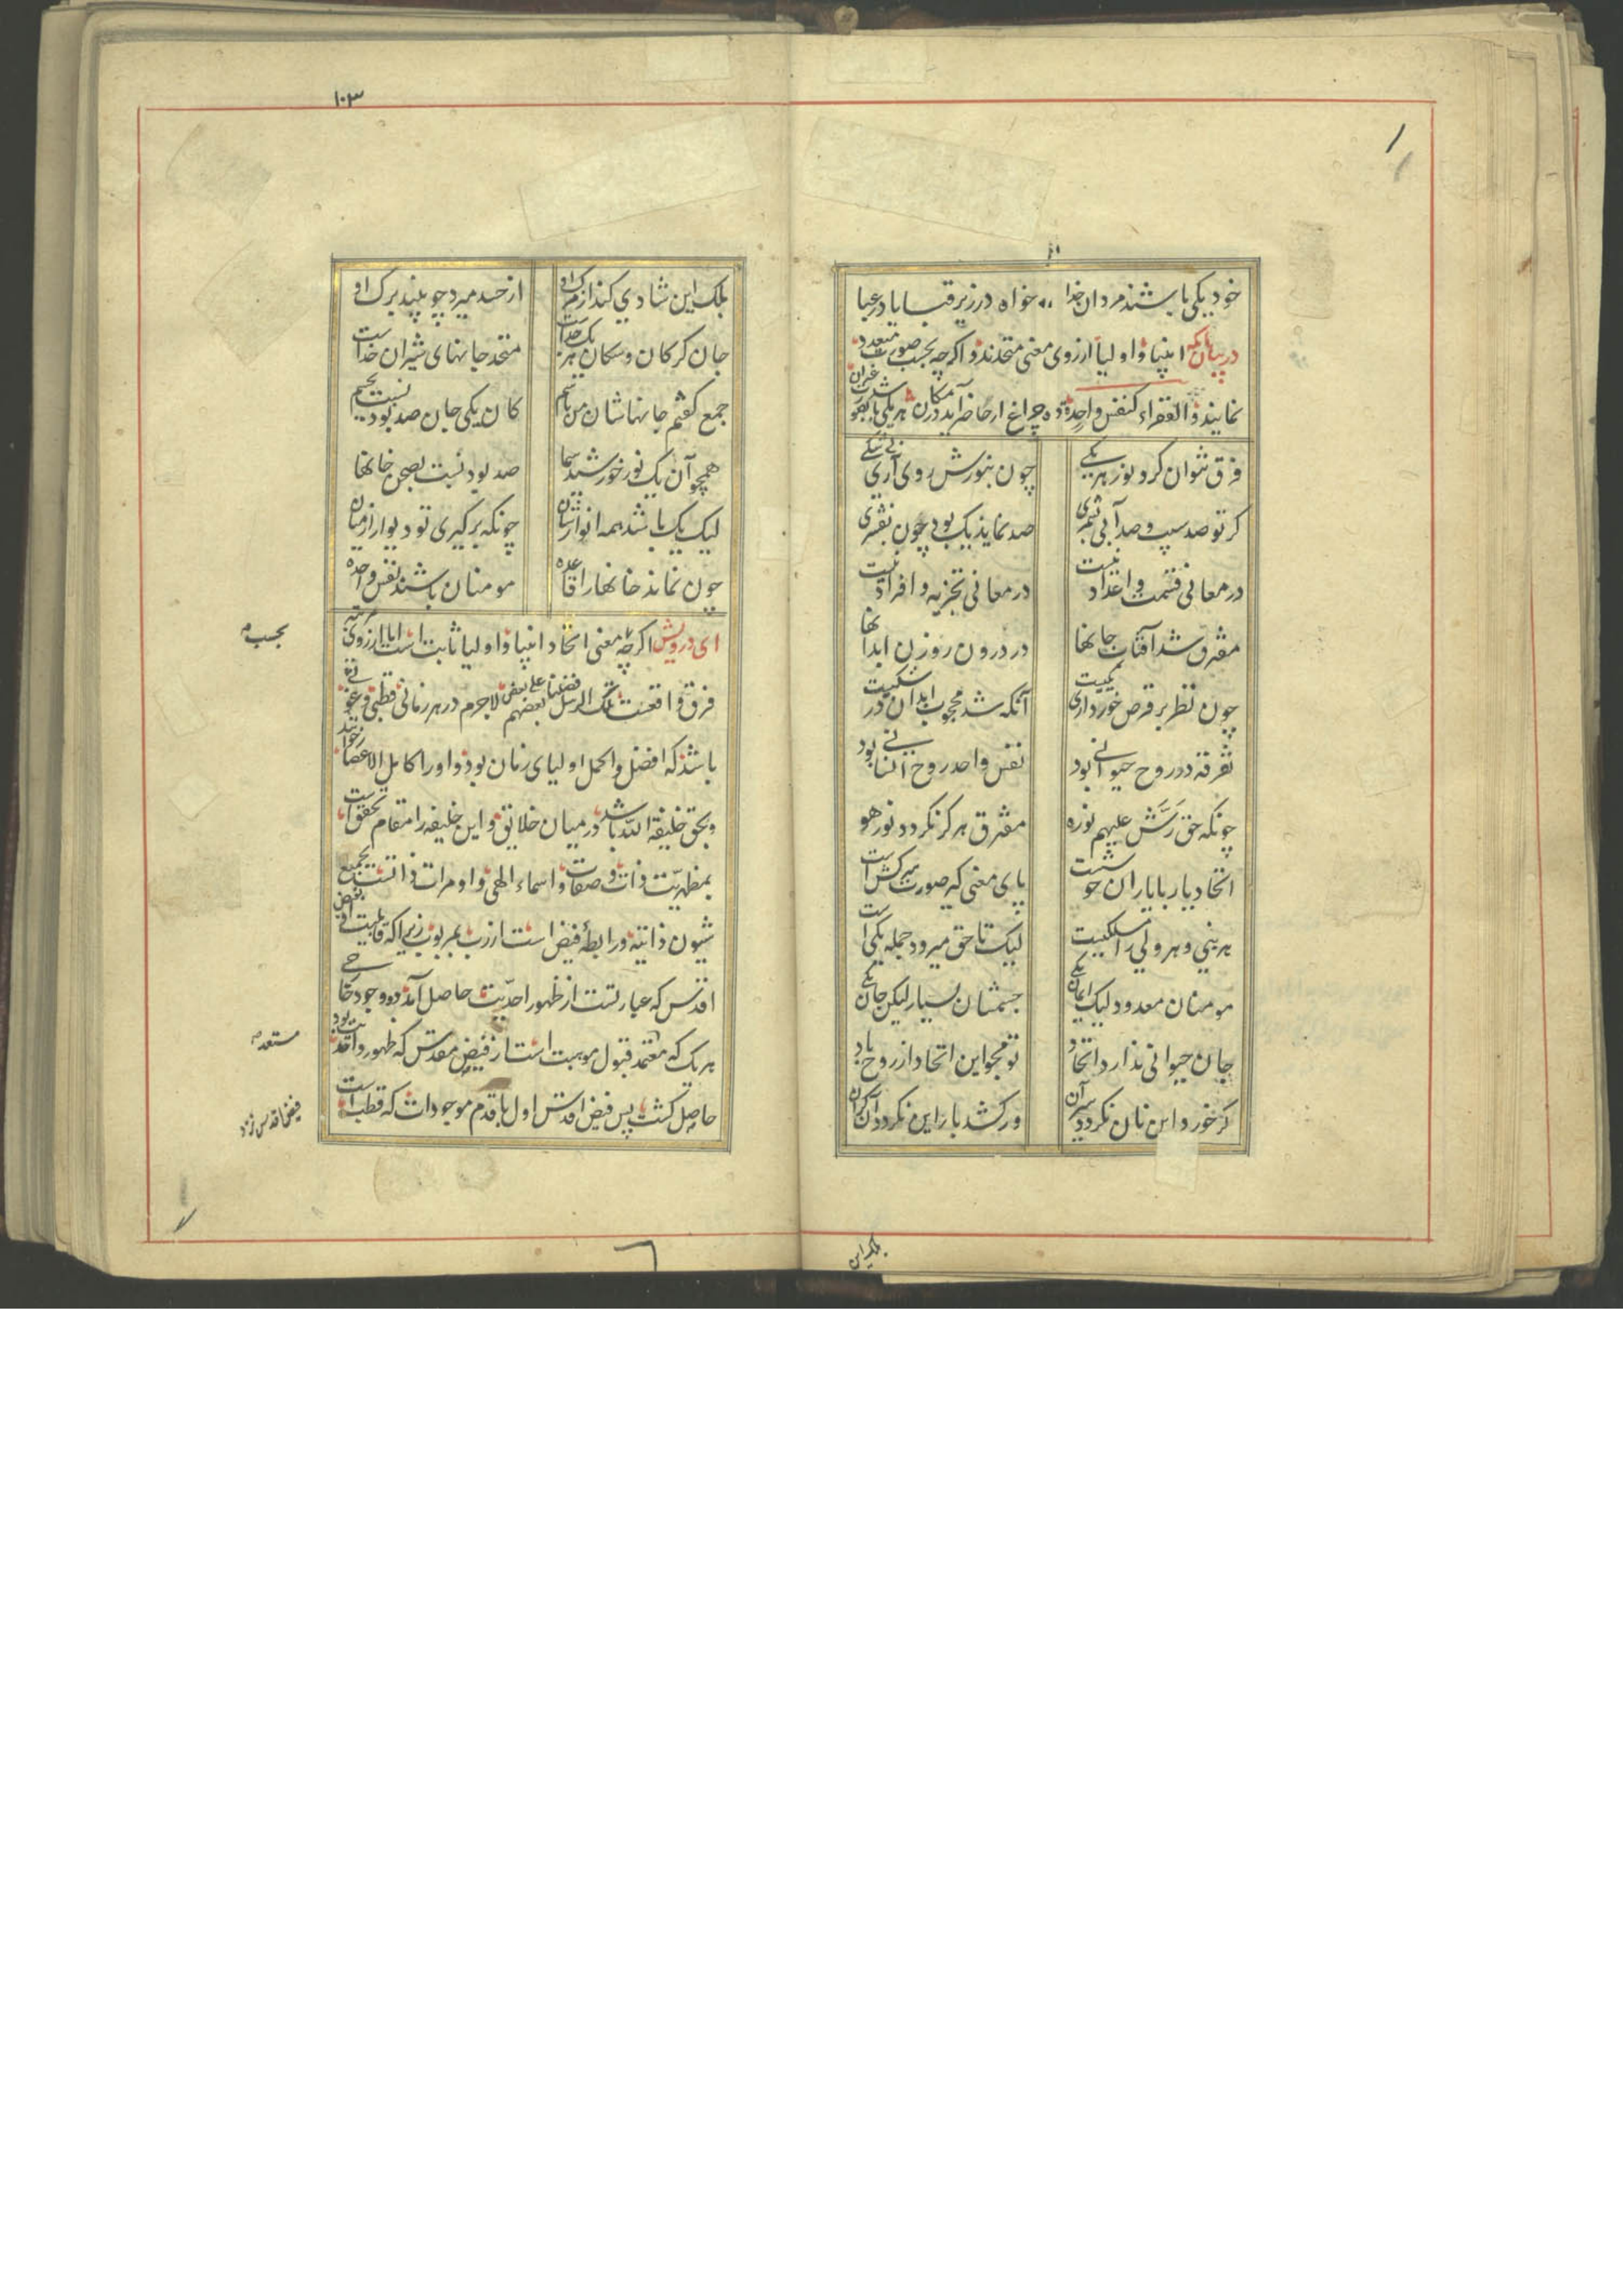 خود یکی باشند مردان خدا ،، خواه در زیر قبا یا در عبا
در بیان آنکه انبیا و اولیا از روی معنی متحدند و اگر چه بحسب صورت متعدد
نمایند و الفقراء کنفس واحدة ده چراغ ار حاضر آید در مکان هر یکی باشد بصورت غیر آن
فرق نتوان کرد نور هر یکی چون بنورش روی آری بی شکی
کر تو صد سیب و صد آبی بشمری صد نماید یک بود چون بفشری
در معانی قسمت و اعداد نیست در معانی تجزیه و افراد نیست
مفترق شد آفتاب جانها در درون روزن ابدانها
چون نظر بر قرص خور داری یکیست آنکه شد محجوب ابدان در شکیست
تفرقه در روح حیوانی بود نفس واحد روح انسانی بود
چونکه حق رَشَّ علیهم نوره مفترق هرکز نکردد نور هو
اتحاد یار با یاران خوشست پای معنی کیر صورت سرکش است
هر نبی و هر ولی را مسلکیست لیک تا حق میرود جمله یکی است
مومنان معدود لیک ایمان یکی جسمشان بسیار لیکن جان یکی
جان حیوانی ندارد اتحاد تو مجو این اتحاد از روح باد
کر خورد این نان نکردد سیر آن ور کشد بار این نکردد آن کران
بلکه این
۱۰۳
بلک این شادی کند از مرک او از حسد میرد چو بیند برک او
جان کرکان و سکان هر یک جداست متحد جانهای شیران خداست
جمع کفتم جانهاشان من باسم کان یکی جان صد بود نسبت بجسم
همچو آن یک نور خورشید سما صد بود نسبت بصحن خانها
لیک یک باشد همه انوارشان چونکه برکیری تو دیوار از میان
چون نماند خانها را قاعده مومنان باشند نفس واحده
ای درویش اکر چه معنی اتحاد انبیا و اولیا ثابت است اما از روی مرتبه
بحسب
فرق واقعست تلک الرسل فضلنا بعضهم علی بعض لاجرم در هر زمانی قطبی و غوثی
باشد که افضل و اکمل اولیای زمان بود و او را کامل الاعضا خوانند
و بحق خلیفة الله باشد در میان خلایق و این خلیفه را مقام تحقق است
بمظهریّت ذات و صفات و اسماء الهی و او مرات ذاتست بجمیع
شیون ذاتیه و رابطهٔ فیض است از رب بمربوب زیرا که قابلیت فیض
اقدس که عبارتست از ظهور احدیّت حاصل آمد و وجود خارجی
هر یک که معتمد قبول موهبت است از فیض مقدس که ظهور واحدیت بود
مستعد
حاصل کشت پس فیض اقدس اول با قدم موجودات که قطب است